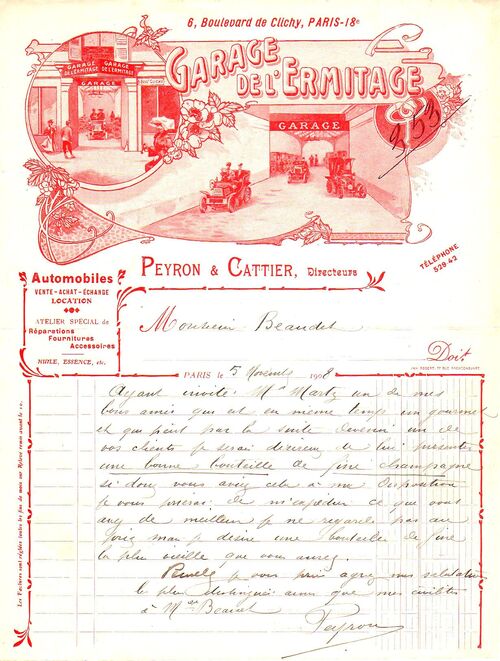 6, Boulevard de Clichy, PARIS-18e
GARAGE
DE L'ERMITAGE
GARAGE GARAGE
DE L'ERMITAGE DE L'ERMITAGE
GARAGE
353
TÉLÉPHONE
529-42
PEYRON & CATTIER, Directeurs
Automobiles
VENTE - ACHAT - ÉCHANGE
LOCATION
ATELIER SPÉCIAL de
Réparations
Fournitures
Accessoires
HUILE, ESSENCE, etc.
Monsieur Beaudet
Doit
PARIS le 5 Novembre 1908
Ayant invité Mr Martz un de mes
bons amis qui est en même temps un gourmet
et qui peut par la suite devenir un de
vos clients je serai désireux de lui présenter
une bonne bouteille de fine champagne
si donc vous aviez cela à ma disposition
je vous prierai de m'expédier ce que vous
avez de meilleur je ne regarde pas au
prix mais je désire une bouteille de fine
la plus vieille que vous aurez.
je vous prie agréer mes salutations
les plus distinguées ainsi que mes civilités
à Mme Beaudet
Peyron
Les Factures sont réglées toutes les fins de mois sur Relevé remis avant le 10.